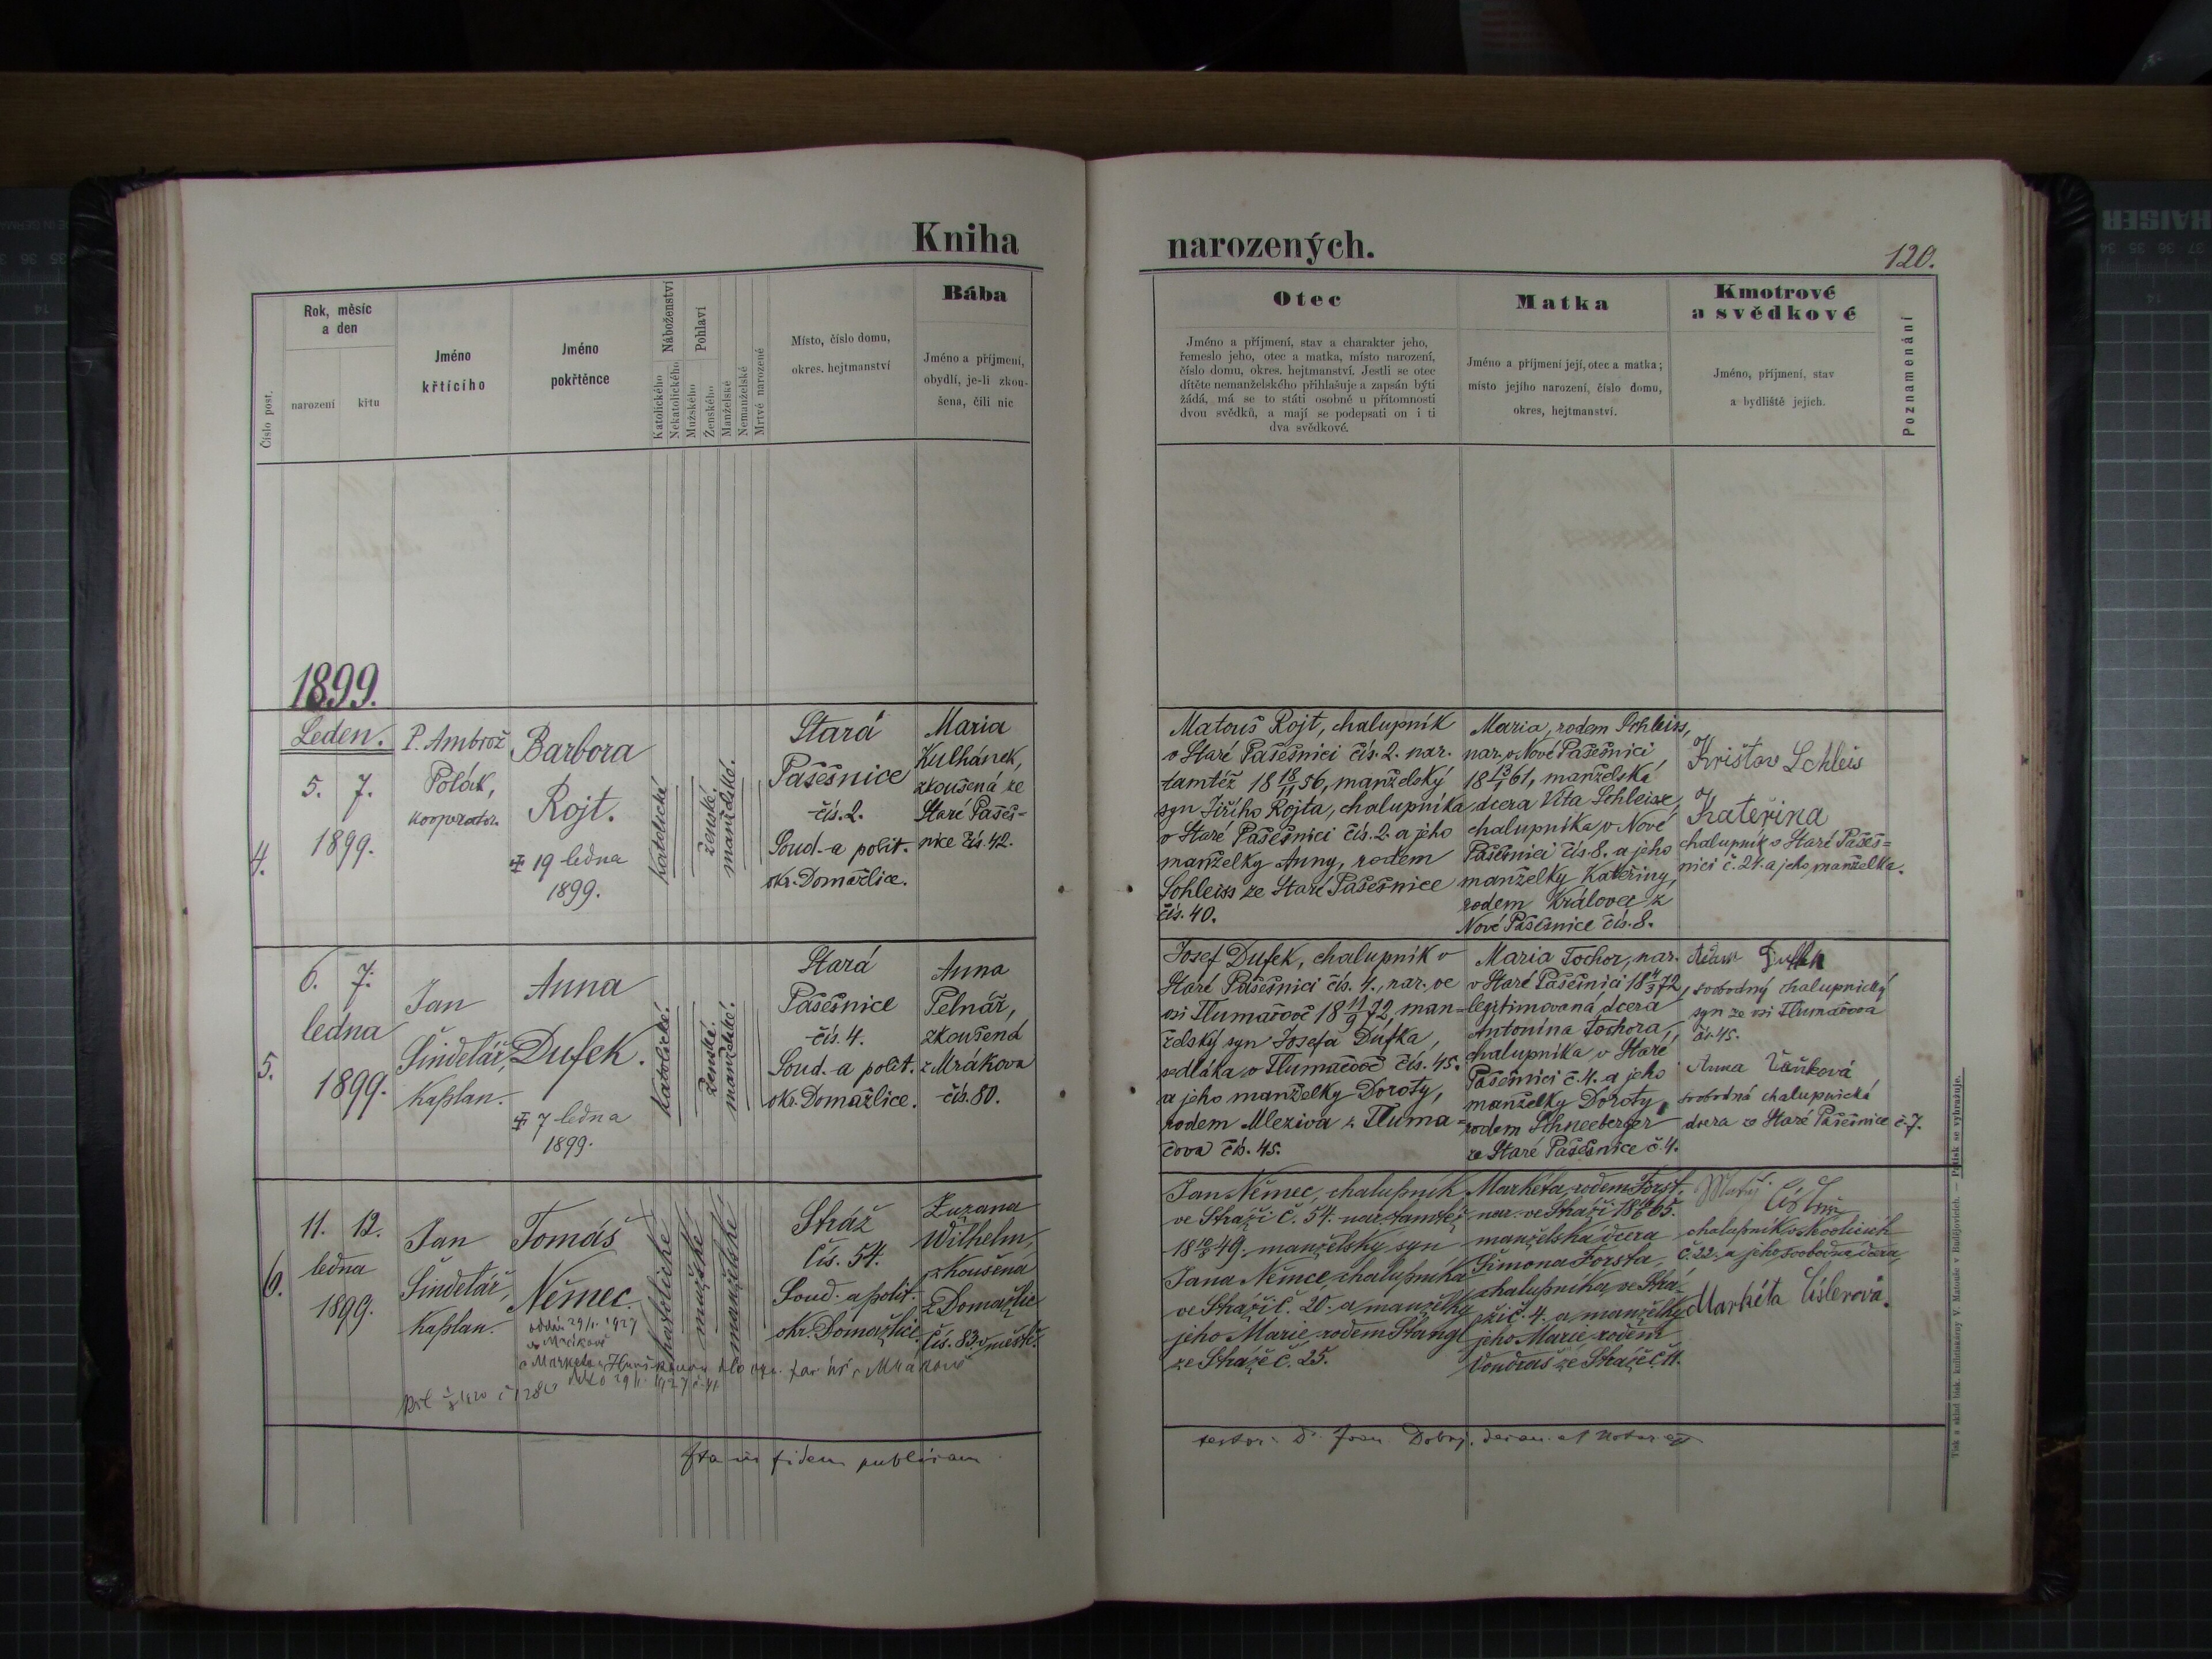 Kniha
narozených.
120.
Číslo post.
Rok, měsíc
a den
narození
křtu
Jméno
křtícího
Jméno
pokřtěnce
Náboženství
Katolického
Nekatolického
Pohlaví
Mužského
Ženského
Manželské
Nemanželské
Mrtvě narozené
Místo, číslo domu,
okres. hejtmanství
Bába
Jméno a příjmení,
obydlí, je-li zkou-
šena, čili nic
Otec
Jméno a příjmení, stav a charakter jeho,
řemeslo jeho, otec a matka, místo narození,
číslo domu, okres. hejtmanství. Jestli se otec
dítěte nemanželského přihlašuje a zapsán býti
žádá, má se to státi osobně u přítomnosti
dvou svědků, a mají se podepsati on i ti
dva svědkové.
Matka
Jméno a příjmení její, otec a matka;
místo jejího narození, číslo domu,
okres, hejtmanství.
Kmotrové
a svědkové
Jméno, příjmení, stav
a bydliště jejich.
Poznamenání
1899.
Leden.
4.
5. 7.
1899.
P. Ambrož
Polák,
kooperator.
Barbora
Rojt.
19 ledna
1899.
katolické
ženské.
manželské.
Stará
Pasešnice
čís. 2.
Soud.- a polit.
okr. Domažlice.
Maria
Kulhánek,
zkoušená ze
Staré Paseš-
nice čís. 42.
Matouš Rojt, chalupník
v Staré Pasešnici čís. 2. nar.
tamtéž 18 18/11 56, manželský
syn Jiřího Rojta, chalupníka
v Staré Pasešnici čís. 2. a jeho
manželky Anny, rodem
Schleiss ze Staré Pasešnice
čís. 40.
Maria, rodem Schleiss,
nar. v Nové Pasešnici,
18 13/1 61, manželská
dcera Víta Schleise,
chalupníka v Nové
Pasešnici čís. 8. a jeho
manželky Kateřiny,
rodem Královec z
Nové Pasešnice čís. 8.
Krištov Schleis
Kateřina
chalupník v Staré Paseš=
nici č. 24. a jeho manželka.
5.
6. 7.
ledna
1899.
Jan
Šindelář,
kaplan.
Anna
Dufek.
7 ledna
1899.
katolické.
ženské.
manželské.
Stará
Pasešnice
čís. 4.
Soud.- a polit.
okr. Domažlice.
Anna
Pelnář,
zkoušená
z Mrákova
čís. 80.
Josef Dufek, chalupník v
Staré Pasešnici čís. 4., nar. ve
vsi Tlumačově 18 11/9 72, man=
želský syn Josefa Dufka,
sedláka v Tlumačově čís. 45.
a jeho manželky Doroty,
rodem Mleziva z Tluma=
čova čís. 45.
Maria Tochor, nar.
v Staré Pasešnici 18 4/3 72,
legitimovaná dcera
Antonína Tochora,
chalupníka v Staré
Pasešnici č. 4. a jeho
manželky Doroty,
rodem Schneeberger
ze Staré Pasešnice č. 4.
Adam Dufek
svobodný chalupnický
syn ze vsi Tlumačova
čís. 45.
Anna Vaňková
svobodná chalupnická
dcera ze Staré Pasešnice č. 7.
6.
11. 12.
ledna
1899.
Jan
Šindelář,
kaplan.
Tomáš
Němec.
oddán 29/1. 1927
v Mrákově
s Marketou
katolické
mužské
manželské
Stráž
čís. 54.
Soud. a polit.
okr. Domažlice.
Zuzana
Wilhelm,
zkoušená
z Domažlic
čís. 83. v městě.
Jan Němec, chalupník
ve Stráži č. 54. nar. tamtéž
49. manželský syn
Jana Němce chalupníka
ve Stráži č. 20. a manželky
jeho Marie rodem Stangl
ze Stráže č. 25.
Markéta, rodem Forst,
nar. ve Stráži 65.
manželská dcera
Šimona Forsta,
chalupníka ve Strá-
ži č. 4. a manželky
jeho Marie rodem
Vondraš ze Stráže č. 11.
Matěj
chalupník
č. 22. a jeho svobodná dcera
Markéta Cislerová.
Ita in fidem publicam
testor: Dr. Joan
Tisk a sklad tisk. knihtiskárny V. Matouše v Budějovicích. — Přetisk se vyhražuje.